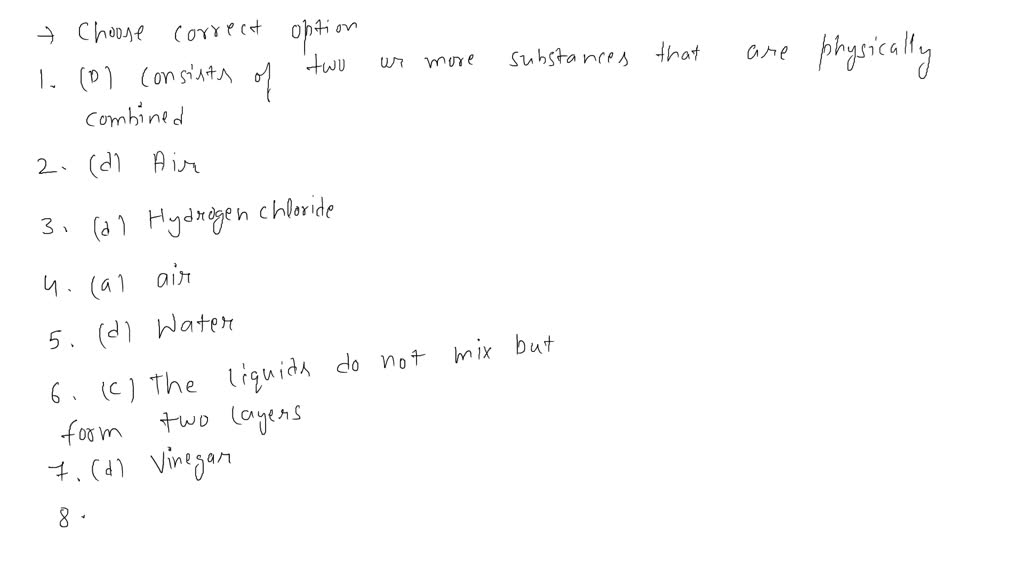 → Choose correct option
1. (D) Consists of two or more substances that are physically
combined
2. (d) Air
3. (d) Hydrogen chloride
4. (a) air
5. (d) Water
6. (c) The liquids do not mix but
form two layers
7. (d) Vinegar
8.